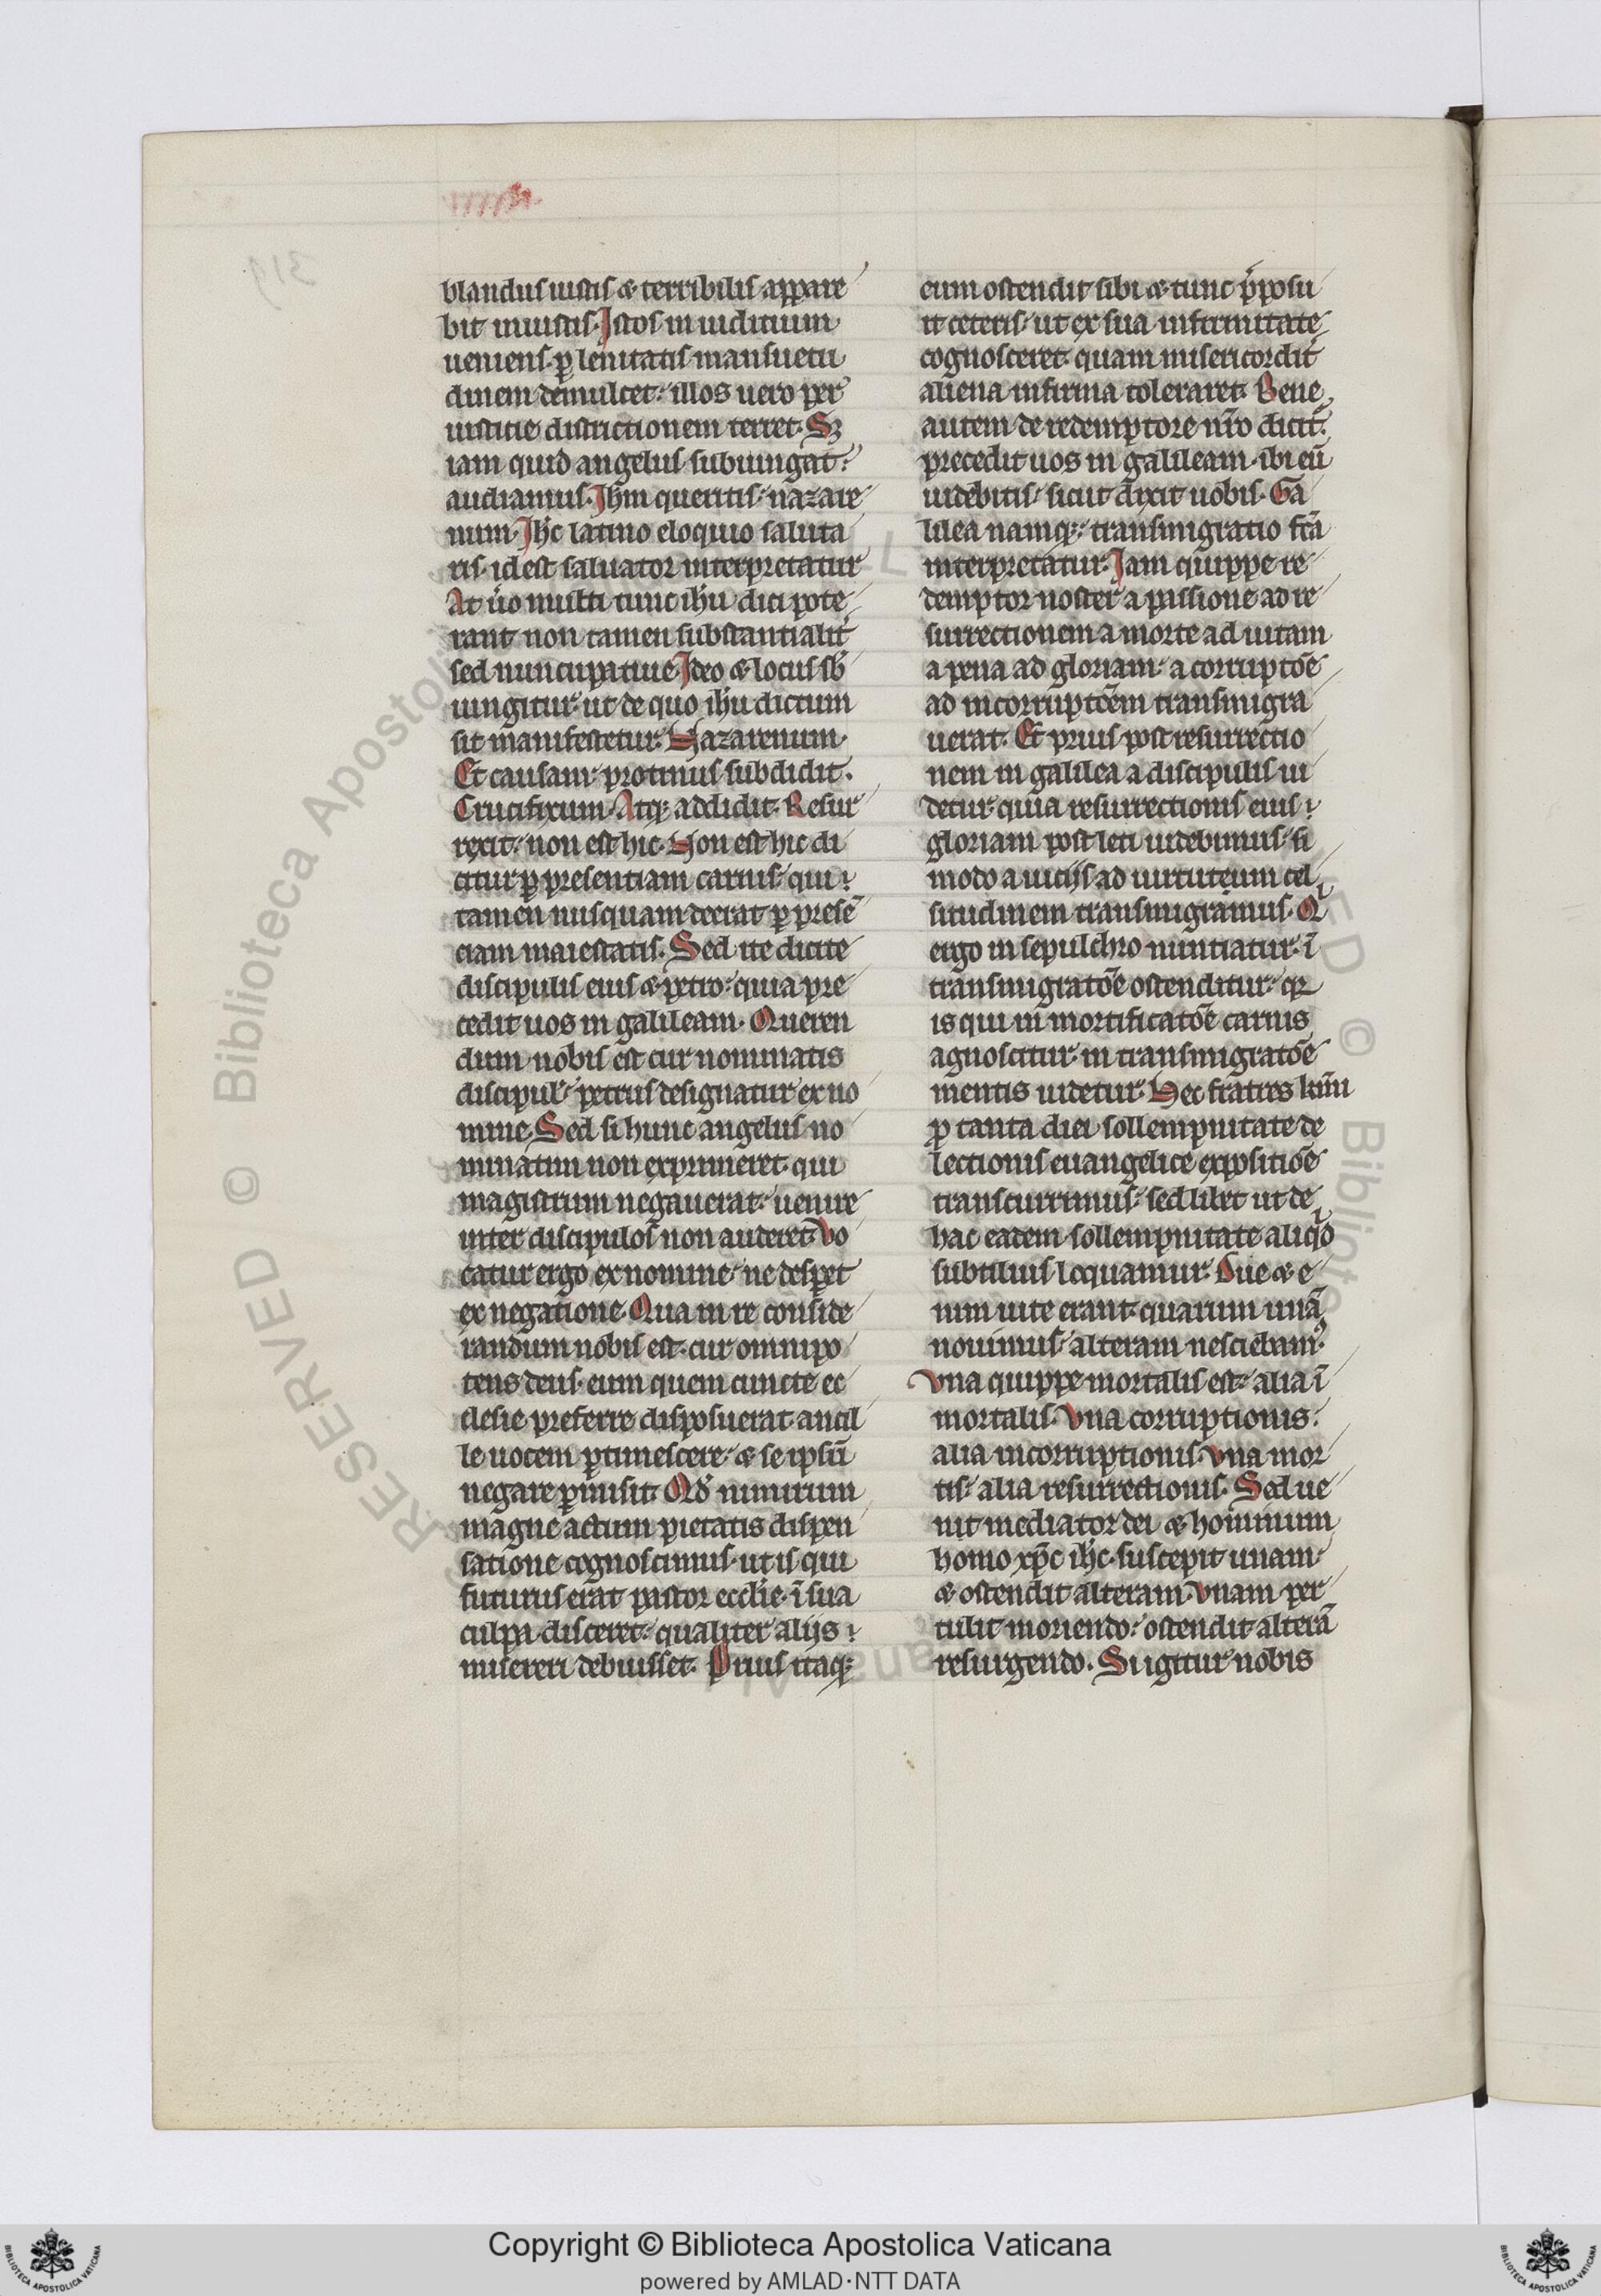 blandus iustis & terribilis appare
bit iniustis. Istos in iuditium
ueniens. ꝑ lenitatis mansuetu
dinem demulcet: illos uero per
iustitie districtionem terret. Sꝫ
iam quid angelus subiungat:
audiamus. Ihm̄ queritis nazare
num. Ihc̄ latino eloquio saluta
ris. id est saluator interpretatur
At u̅o multi tunc ihu̅ dici pote
rant non tamen substantialit̅
sed nuncupatiue. Ideo & locus sb̅
iungitur ut de quo ihu̅ dictum
sit manifestetur. Nazarenum.
Et causam protinus subdidit.
Crucifixum. Atqꝫ addidit. Resur
rexit: non est hic. Non est hic di
citur ꝑ presentiam carnis. qui
tamen nusquam deerat ꝑ presē
ciam maiestatis. Sed ite dicite
discipulis eius & petro: quia pre
cedit uos in galileam. Queren
dum nobis est cur nominatis
discipul̅ petrus designatur ex no
mine. Sed si hunc angelus no
minatim non exprimeret. qui
magistrum negauerat: uenire
inter discipulos non auderet. Vo
catur ergo ex nomine ne desꝑet
ex negatione. Qua in re conside
randum nobis est. cur omnipo
tens deus. eum quem cuncte ec
clesie preferre disposuerat. ancil
le uocem ꝑtimescere: & se ipsū
negare ꝑmisit. Qd̅ nimirum
magne actum pietatis dispen
satione cognoscimus. ut is qui
futurus erat pastor eccl̅ie. ī sua
culpa disceret: qualiter aliis
misereri debuisset. Prius itaqꝫ
eum ostendit sibi & tunc p̅posu
it ceteris. ut ex sua infirmitate
cognosceret quam misericordit̅
aliena infirma toleraret. Bene
autem de redemptore nr̅o dicit̅.
precedit uos in galileam. ibi eū
uidebitis sicut dixit uobis. Ga
lilea namqꝫ: transmigratio fc̅a
interpretatur. Iam quippe re
demptor noster a passione ad re
surrectionem a morte ad uitam
a pena ad gloriam. a corruptōe
ad incorruptōem transmigra
uerat. Et prius post resurrectio
nem in galilea a discipulis ui
detur. quia resurrectionis eius
gloriam post leti uidebimus. si
modo a uiciis ad uirtutum cel
situdinem transmigramus. Qͥ
ergo in sepulchro nuntiatur. ī
transmigratōe ostenditur. qꝛ
is qui in mortificatōe carnis
agnoscitur in transmigratōe
mentis uidetur. Hec fratres km̅i
ꝓ tanta diei sollempnitate de
lectionis euangelice expositiōe
transcurrimus. sed libet ut de
hac eadem sollempnitate aliqͥd
subtilius loquamur. Due & e
nim uite erant. quarum unā
nouimus alteram nesciebam̓.
Vna quippe mortalis est alia ī
mortalis. Vna corruptionis.
alia incorruptionis. Vna mor
tis alia resurrectionis. Sed ue
nit mediator dei & hominum
homo xp̅c ihc̅. suscepit unam
& ostendit alteram. Vnam per
tulit moriendo: ostendit alterā
resurgendo. Si igitur nobis
RESERVED © Biblioteca Apostolica
Copyright © Biblioteca Apostolica Vaticana
powered by AMLAD·NTT DATA